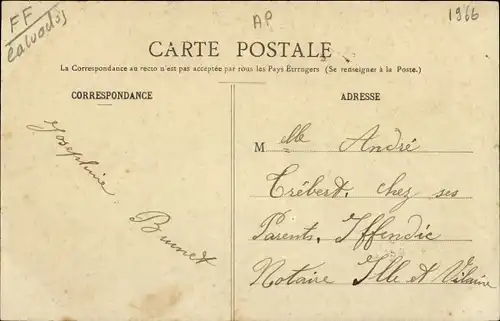 FF
Calvados
AP
1966
CARTE POSTALE
La Correspondance au recto n'est pas acceptée par tous les Pays Étrangers (Se renseigner à la Poste.)
CORRESPONDANCE
ADRESSE
Josephine
Brunet
Melle André
Trébert, chez ses
Parents, Iffendic
Notaire Ille et Vilaine